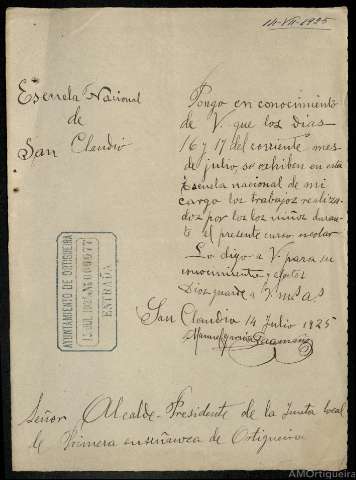 14-VII-1925
Escuela Nacional
de
San Claudio
Pongo en conocimiento
de V. que los dias
16 y 17 del corriente mes
de julio, se exhiben en esta
Escuela nacional de mi
cargo los trabajos realiza-
dos por los los niños duran-
te el presente curso escolar
Lo digo a V. para su
conocimiento y efectos
Dios guarde a V. m.s a.s
San Claudio 14 Julio 1925
AYUNTAMIENTO DE ORTIGUEIRA
15 JUL. 1925 № 000677
ENTRADA
Señor Alcalde-Presidente de la Junta local
de Primera enseñanza de Ortigueira
AMOrtigueira